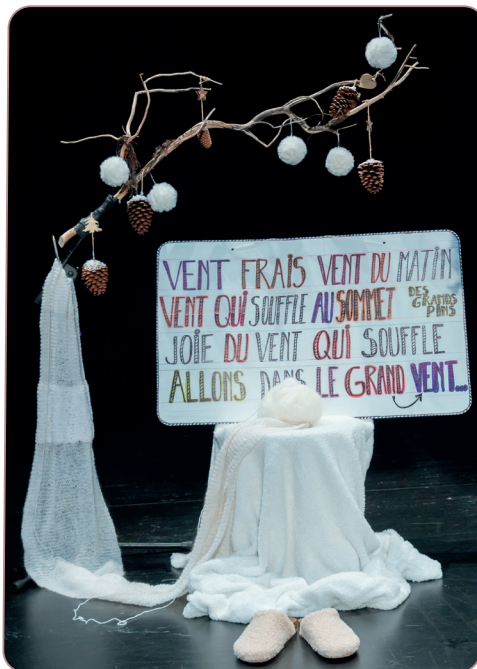 VENT FRAIS VENT DU MATIN
VENT QUI SOUFFLE AU SOMMET DES GRANDS PINS
JOIE DU VENT QUI SOUFFLE
ALLONS DANS LE GRAND VENT...